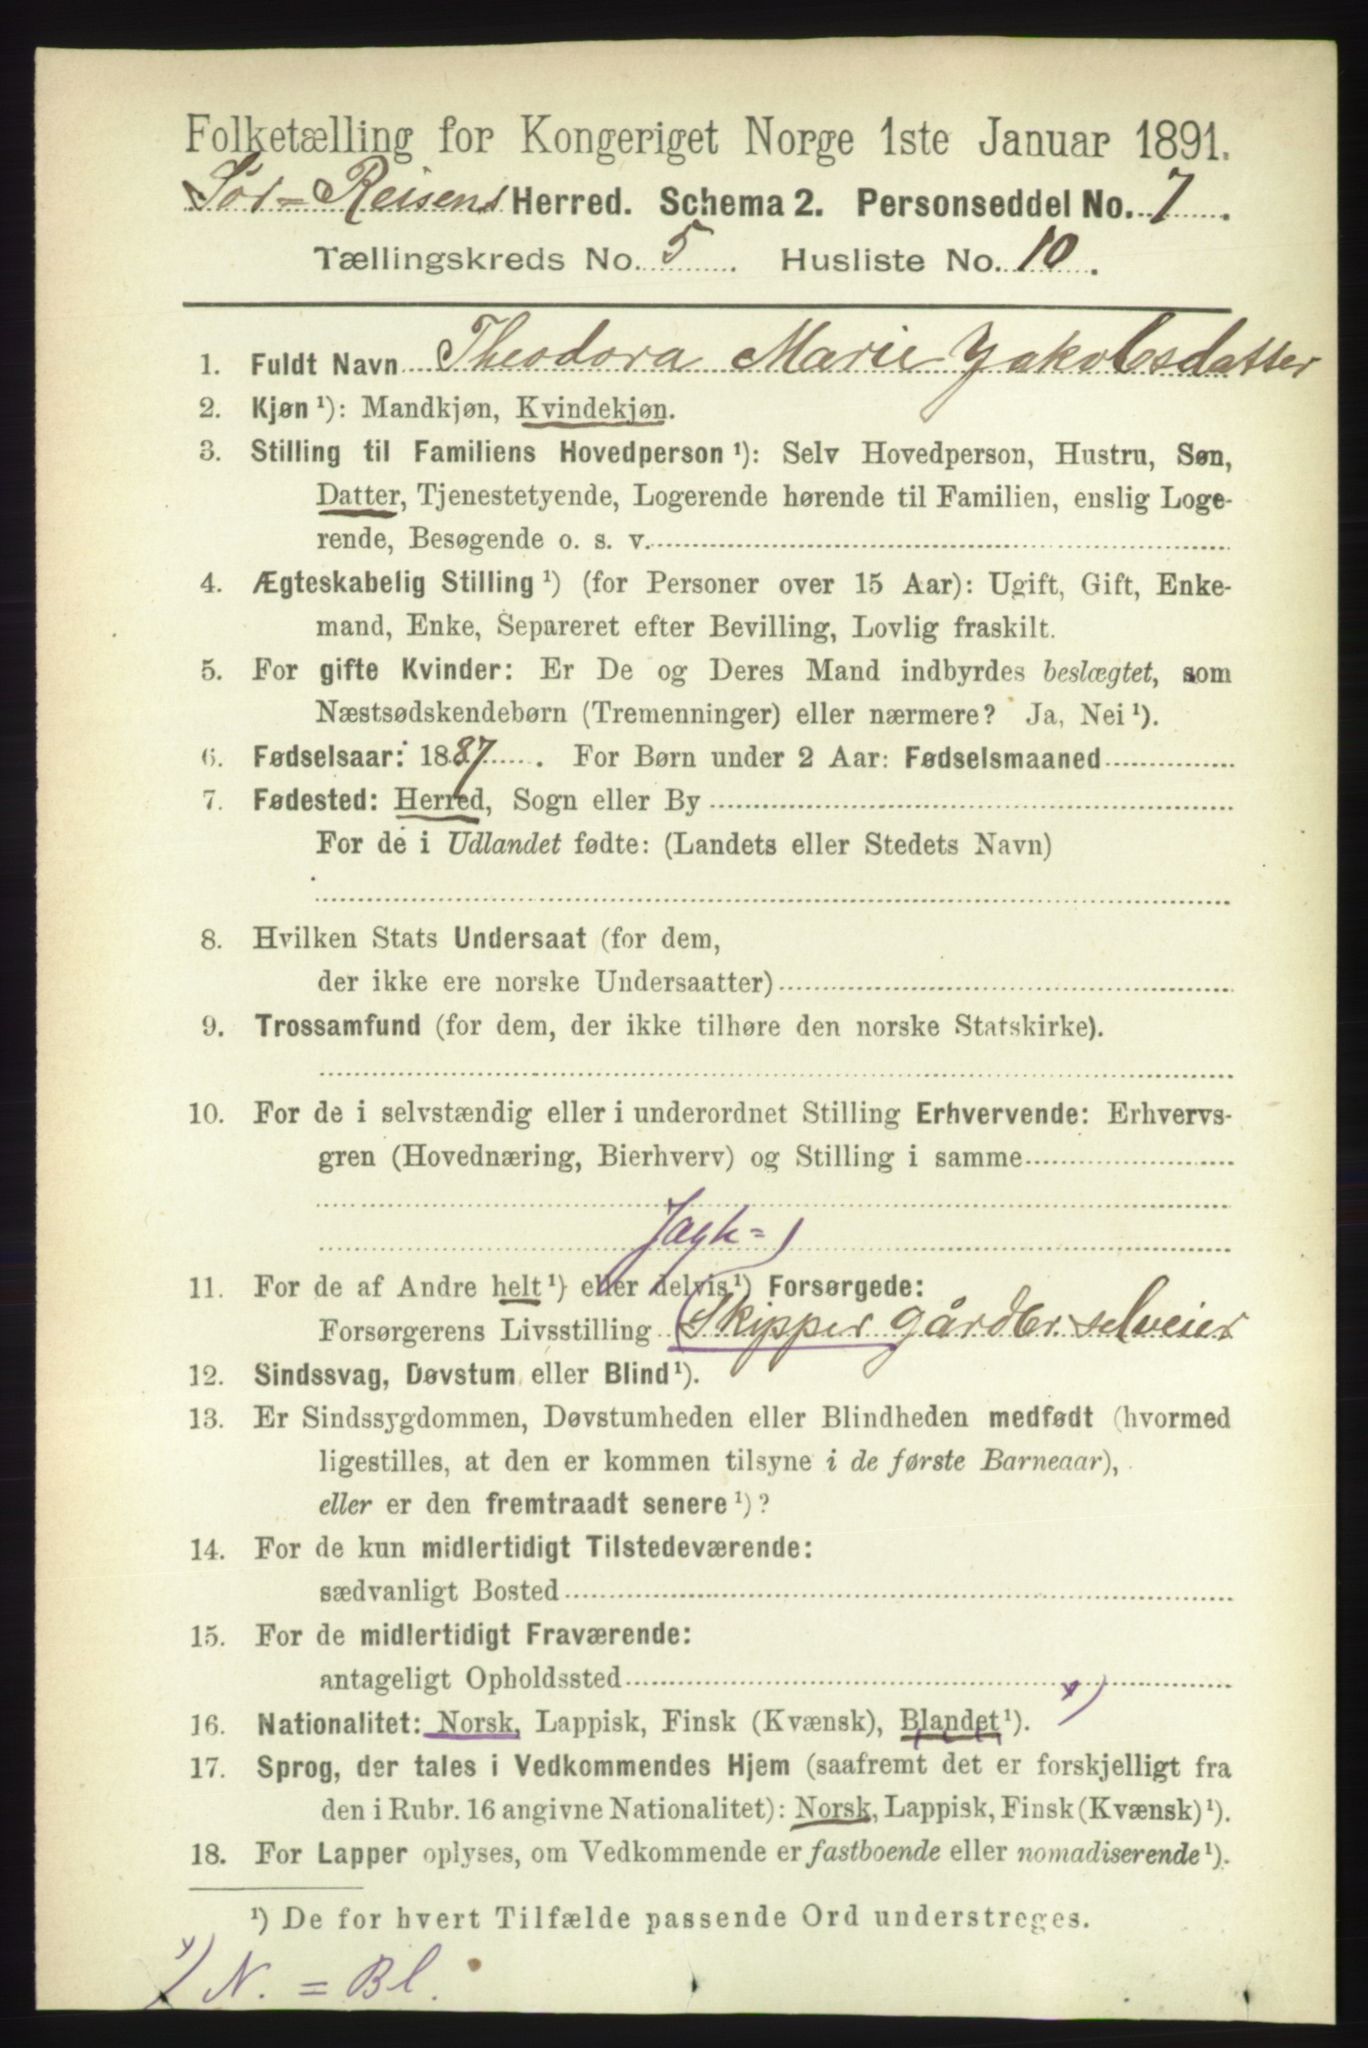 Folketælling for Kongeriget Norge 1ste Januar 1891.
Sør=Reisens Herred. Schema 2. Personseddel No. 7.
Tællingskreds No. 5. Husliste No. 10.
1. Fuldt Navn Theodora Marie Jakobsdatter
2. Kjøn ¹): Mandkjøn, Kvindekjøn.
3. Stilling til Familiens Hovedperson ¹): Selv Hovedperson, Hustru, Søn,
Datter, Tjenestetyende, Logerende hørende til Familien, enslig Loge-
rende, Besøgende o. s. v.
4. Ægteskabelig Stilling ¹) (for Personer over 15 Aar): Ugift, Gift, Enke-
mand, Enke, Separeret efter Bevilling, Lovlig fraskilt.
5. For gifte Kvinder: Er De og Deres Mand indbyrdes beslægtet, som
Næstsødskendebørn (Tremenninger) eller nærmere? Ja, Nei ¹).
6. Fødselsaar: 1887. For Børn under 2 Aar: Fødselsmaaned
7. Fødested: Herred, Sogn eller By
For de i Udlandet fødte: (Landets eller Stedets Navn)
8. Hvilken Stats Undersaat (for dem,
der ikke ere norske Undersaatter)
9. Trossamfund (for dem, der ikke tilhøre den norske Statskirke).
10. For de i selvstændig eller i underordnet Stilling Erhvervende: Erhvervs-
gren (Hovednæring, Bierhverv) og Stilling i samme
Jagt=)
11. For de af Andre helt ¹) eller delvis ¹) Forsørgede:
Forsørgerens Livsstilling (Skipper gårdbr. selveier
12. Sindssvag, Døvstum eller Blind ¹).
13. Er Sindssygdommen, Døvstumheden eller Blindheden medfødt (hvormed
ligestilles, at den er kommen tilsyne i de første Barneaar),
eller er den fremtraadt senere ¹)?
14. For de kun midlertidigt Tilstedeværende:
sædvanligt Bosted
15. For de midlertidigt Fraværende:
antageligt Opholdssted
16. Nationalitet: Norsk, Lappisk, Finsk (Kvænsk), Blandet ¹). x)
17. Sprog, der tales i Vedkommendes Hjem (saafremt det er forskjelligt fra
den i Rubr. 16 angivne Nationalitet): Norsk, Lappisk, Finsk (Kvænsk) ¹).
18. For Lapper oplyses, om Vedkommende er fastboende eller nomadiserende ¹).
¹) De for hvert Tilfælde passende Ord understreges.
x) N. = Bl.